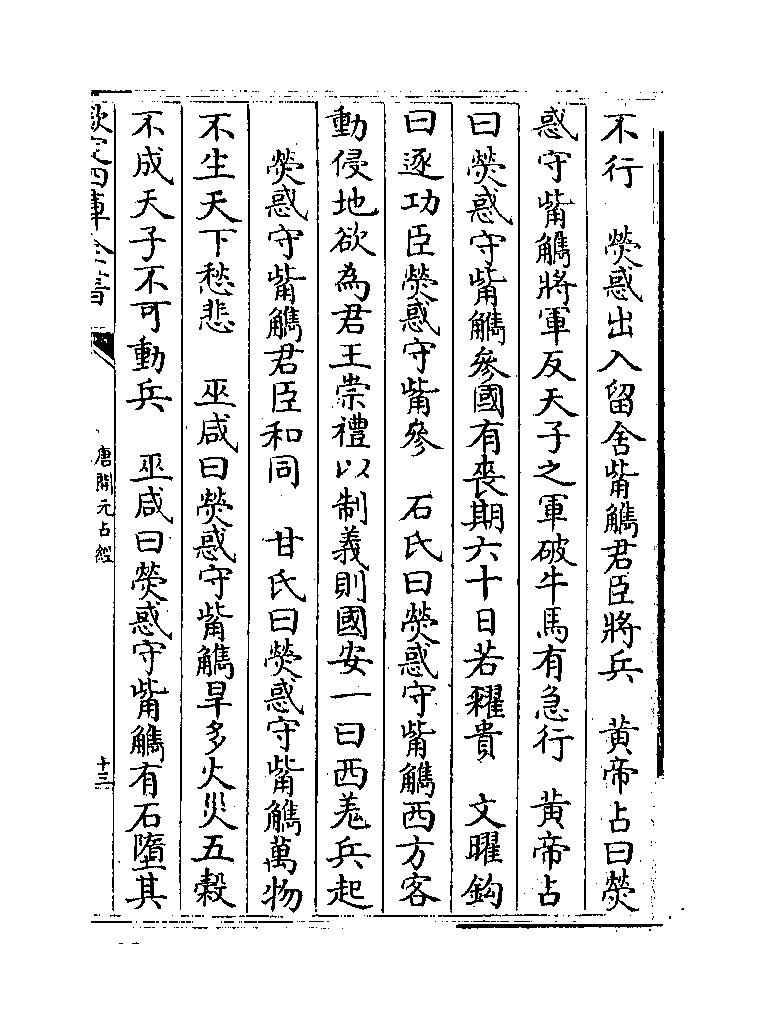 不行　熒惑出入留舍觜觿君臣將兵　黄帝占曰熒
惑守觜觿將軍反天子之軍破牛馬有急行　黄帝占
曰熒惑守觜觿參國有喪期六十日若糴貴　文曜鈎
曰逐功臣熒惑守觜參　石氏曰熒惑守觜觿西方客
動侵地欲為君王崇禮以制義則國安一曰西羗兵起
熒惑守觜觿君臣和同　甘氏曰熒惑守觜觿萬物
不生天下愁悲　巫咸曰熒惑守觜觿旱多火災五榖
不成天子不可動兵　巫咸曰熒惑守觜觿有石墮其
欽定四庫全書
唐開元占經
十三